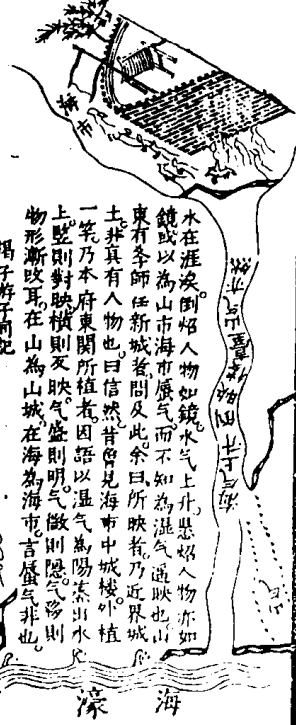 海气上升倒映楼臺山气亦然
水在涯涘倒炤人物如鏡。水气上升。悬炤人物亦如
鏡。或以為山市海市蜃气。而不知為湿气遥映也。山
東有李師任新城者。問及此。余曰。所映者。乃近界城
土。非真有人物也。曰信然。昔曾見海市中城楼。外植
一竿。乃本府東関所植者。因語以湿气為陽蒸出水
上。竪則對映。横則反映。气盛則明。气微則隐。气移則
物形漸改耳。在山為山城。在海為海市。言蜃气非也。
揭子游子同記
海濠